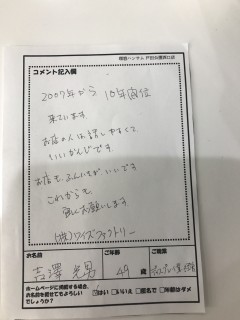 コメント記入欄
2007年から 10年位
来ています
お店の人は話しやすくて
いいかんじです
お店も、ふんいきがいいです
これからも
宜しくお願いします
(株)ワイズファクトリー
お名前
ご年齢
ご職業
吉澤 光男
49 歳
ホームページに掲載する場合、
お名前を載せてもよろしい
でしょうか?
はい いいえ 匿名で 掲載はダメ